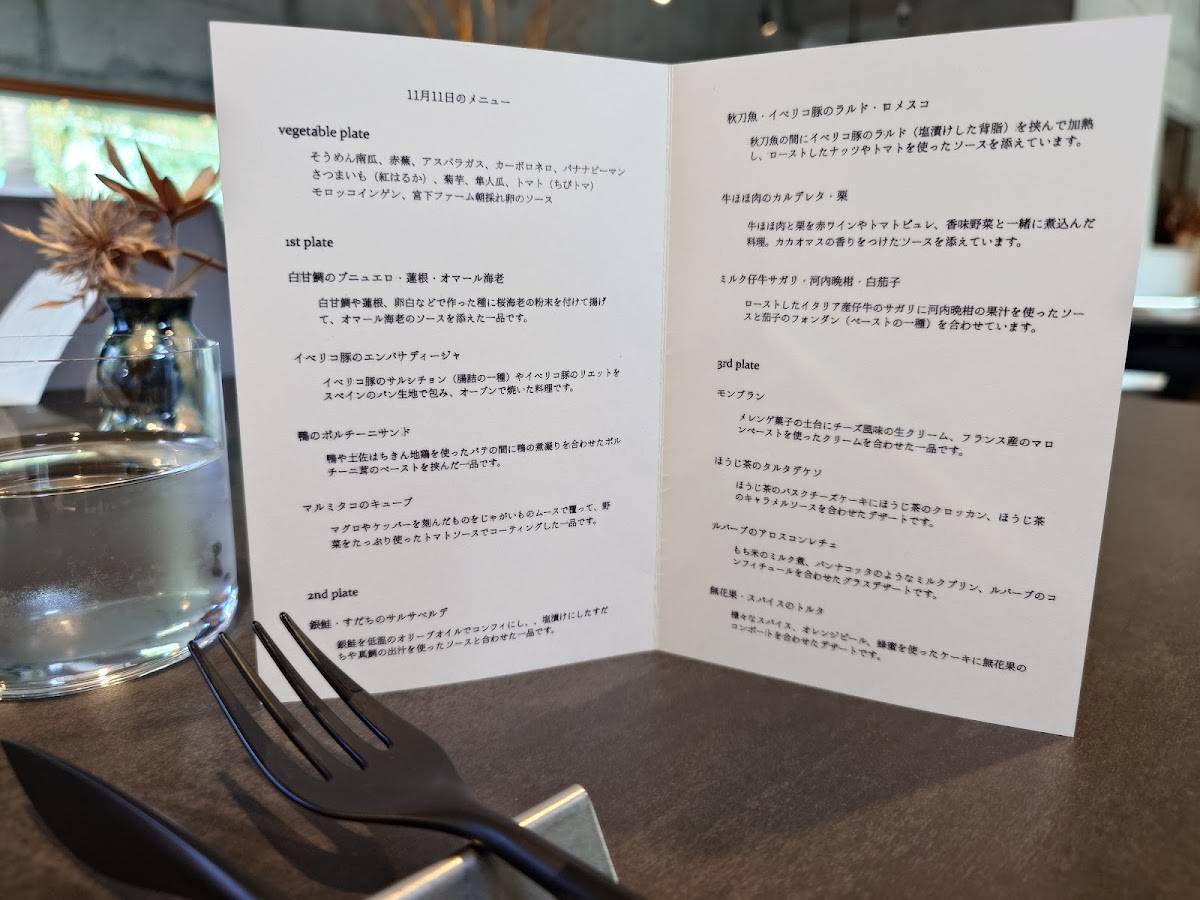 11月11日のメニュー
vegetable plate
そうめん南瓜、赤蕪、アスパラガス、カーボロネロ、バナナピーマン
さつまいも（紅はるか）、菊芋、隼人瓜、トマト（ちびトマ）
モロッコインゲン、宮下ファーム朝採れ卵のソース
1st plate
白甘鯛のブニュエロ・蓮根・オマール海老
白甘鯛や蓮根、卵白などで作った種に桜海老の粉末を付けて揚げ
て、オマール海老のソースを添えた一品です。
イベリコ豚のエンパナディージャ
イベリコ豚のサルシチョン（腸詰の一種）やイベリコ豚のリエットを
スペインのパン生地で包み、オーブンで焼いた料理です。
鴨のポルチーニサンド
鴨や土佐はちきん地鶏を使ったパテの間に鴨の煮凝りを合わせたポル
チーニ茸のペーストを挟んだ一品です。
マルミタコのキューブ
マグロやケッパーを刻んだものをじゃがいものムースで覆って、野
菜をたっぷり使ったトマトソースでコーティングした一品です。
2nd plate
銀鮭・すだちのサルサベルデ
銀鮭を低温のオリーブオイルでコンフィにし、、塩漬けにしたすだ
ちや真鯛の出汁を使ったソースと合わせた一品です。
秋刀魚・イベリコ豚のラルド・ロメスコ
秋刀魚の間にイベリコ豚のラルド（塩漬けした背脂）を挟んで加熱
し、ローストしたナッツやトマトを使ったソースを添えています。
牛ほほ肉のカルデレタ・栗
牛ほほ肉と栗を赤ワインやトマトピュレ、香味野菜と一緒に煮込んだ
料理。カカオマスの香りをつけたソースを添えています。
ミルク仔牛サガリ・河内晩柑・白茄子
ローストしたイタリア産仔牛のサガリに河内晩柑の果汁を使ったソー
スと茄子のフォンダン（ペーストの一種）を合わせています。
3rd plate
モンブラン
メレンゲ菓子の土台にチーズ風味の生クリーム、フランス産のマロ
ンペーストを使ったクリームを合わせた一品です。
ほうじ茶のタルタデケソ
ほうじ茶のバスクチーズケーキにほうじ茶のクロッカン、ほうじ茶
のキャラメルソースを合わせたデザートです。
ルバーブのアロスコンレチェ
もち米のミルク煮、パンナコッタのようなミルクプリン、ルバーブのコ
ンフィチュールを合わせたグラスデザートです。
無花果・スパイスのトルタ
様々なスパイス、オレンジピール、蜂蜜を使ったケーキに無花果の
コンポートを合わせたデザートです。